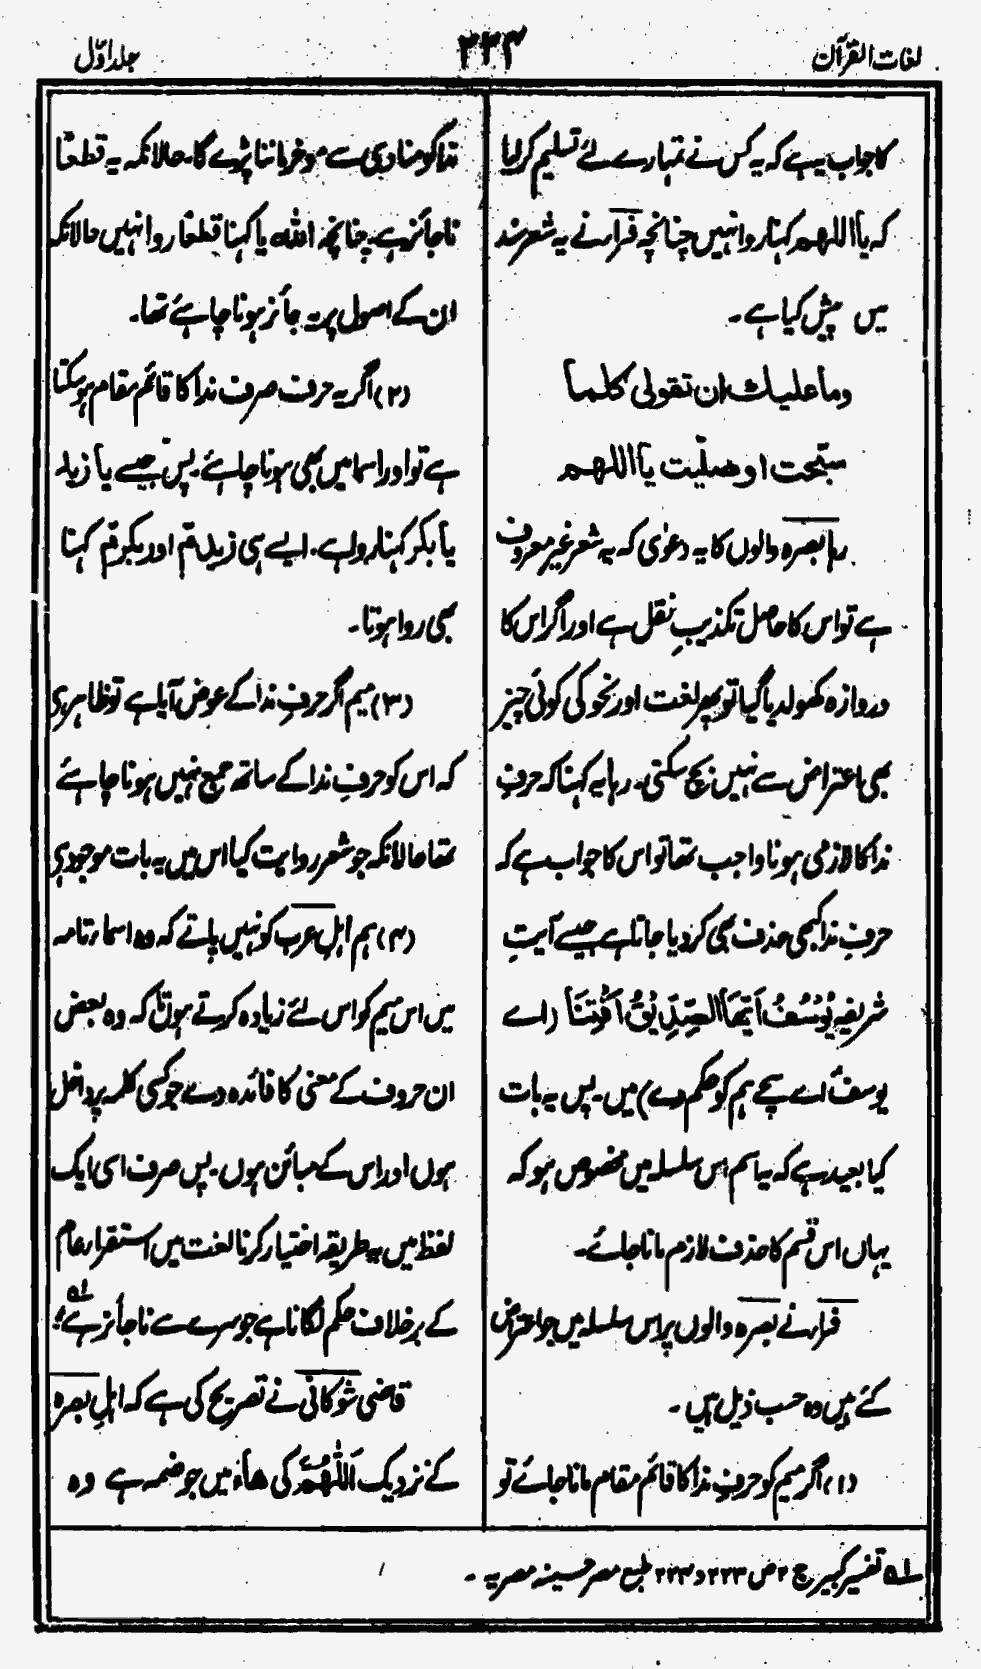 لغات القرآن
۲۳۴
جلد اوّل
کا جواب یہ ہے کہ یہ کس نے تمہارے لئے تسلیم کر لیا
کہ یا اللھم کہنا روا نہیں چنانچہ فراء نے یہ شعر سند
میں پیش کیا ہے۔
وما علیك ان تقولی کلما
سبّحت او صلّیت یا اللھم
رہا بصرہ والوں کا یہ دعوٰی کہ یہ شعر غیر معروف
ہے تو اس کا حاصل تکذیبِ نقل ہے اور اگر اس کا
دروازہ کھولدیا گیا تو پھر لغت اور نحو کی کوئی چیز
بھی اعتراض سے نہیں بچ سکتی۔ رہا یہ کہنا کہ حرفِ
ندا کا لازمی ہونا واجب تھا تو اس کا جواب ہے کہ
حرفِ ندا کبھی حذف بھی کر دیا جاتا ہے جیسے آیتِ
شریفہ یُوْسُفُ اَیُّھَا الصِّدِّیْقُ اَفْتِنَا (اے
یوسفؑ اے سچے ہم کو حکم دے) میں۔ پس یہ بات
کیا بعید ہے کہ یہ اسم اس سلسلہ میں مخصوص ہو کہ
یہاں اس قسم کا حذف لازم مانا جائے۔
فراء نے بصرہ والوں پر اس سلسلہ میں جو اعتراض
کئے ہیں وہ حسب ذیل ہیں۔
(۱) اگر میم کو حرفِ ندا کا قائم مقام مانا جائے تو
ندا کو منادیٰ سے موخر ماننا پڑے گا۔ حالانکہ یہ قطعًا
ناجائز ہے۔ چنانچہ اللہ یا کہنا قطعًا روا نہیں حالانکہ
ان کے اصول پر یہ جائز ہونا چاہئے تھا۔
(۲) اگر یہ حرف صرف ندا کا قائم مقام ہو سکتا
ہے تو اور اسما میں بھی ہونا چاہئے۔ پس جیسے یا زید
یا بکر کہنا روا ہے۔ ایسے ہی زیدم اور بکرم کہنا
بھی روا ہوتا۔
(۳) میم اگر حرفِ ندا کے عوض آیا ہے تو ظاہر ہی
کہ اس کو حرفِ ندا کے ساتھ جمع نہیں ہونا چاہئے
تھا حالانکہ جو شعر روایت کیا اس میں یہ بات موجود ہی
(۴) ہم اہلِ عرب کو نہیں پاتے کہ وہ اسماء تامہ
میں اس میم کو اس لئے زیادہ کرتے ہوں تاکہ وہ بعض
ان حروف کے معنی کا فائدہ دے جو کسی کلمہ پر داخل
ہوں اور اس کے مبائن ہوں۔ پس صرف اسی ایک
لفظ میں یہ طریقہ اختیار کرنا لغت میں استقراء عام
کے برخلاف حکم لگانا ہے جو سرے سے ناجائز ہے؛ لہ
قاضی شوکانی نے تصریح کی ہے کہ اہلِ بصرہ
کے نزدیک اَللّٰھُمَّ کی ھاء میں جو ضمہ ہے وہ
لہ تفسیر کبیر ج ۲ ص ۲۲۳ و ۲۲۴ طبع مصر حسینہ مصریہ۔